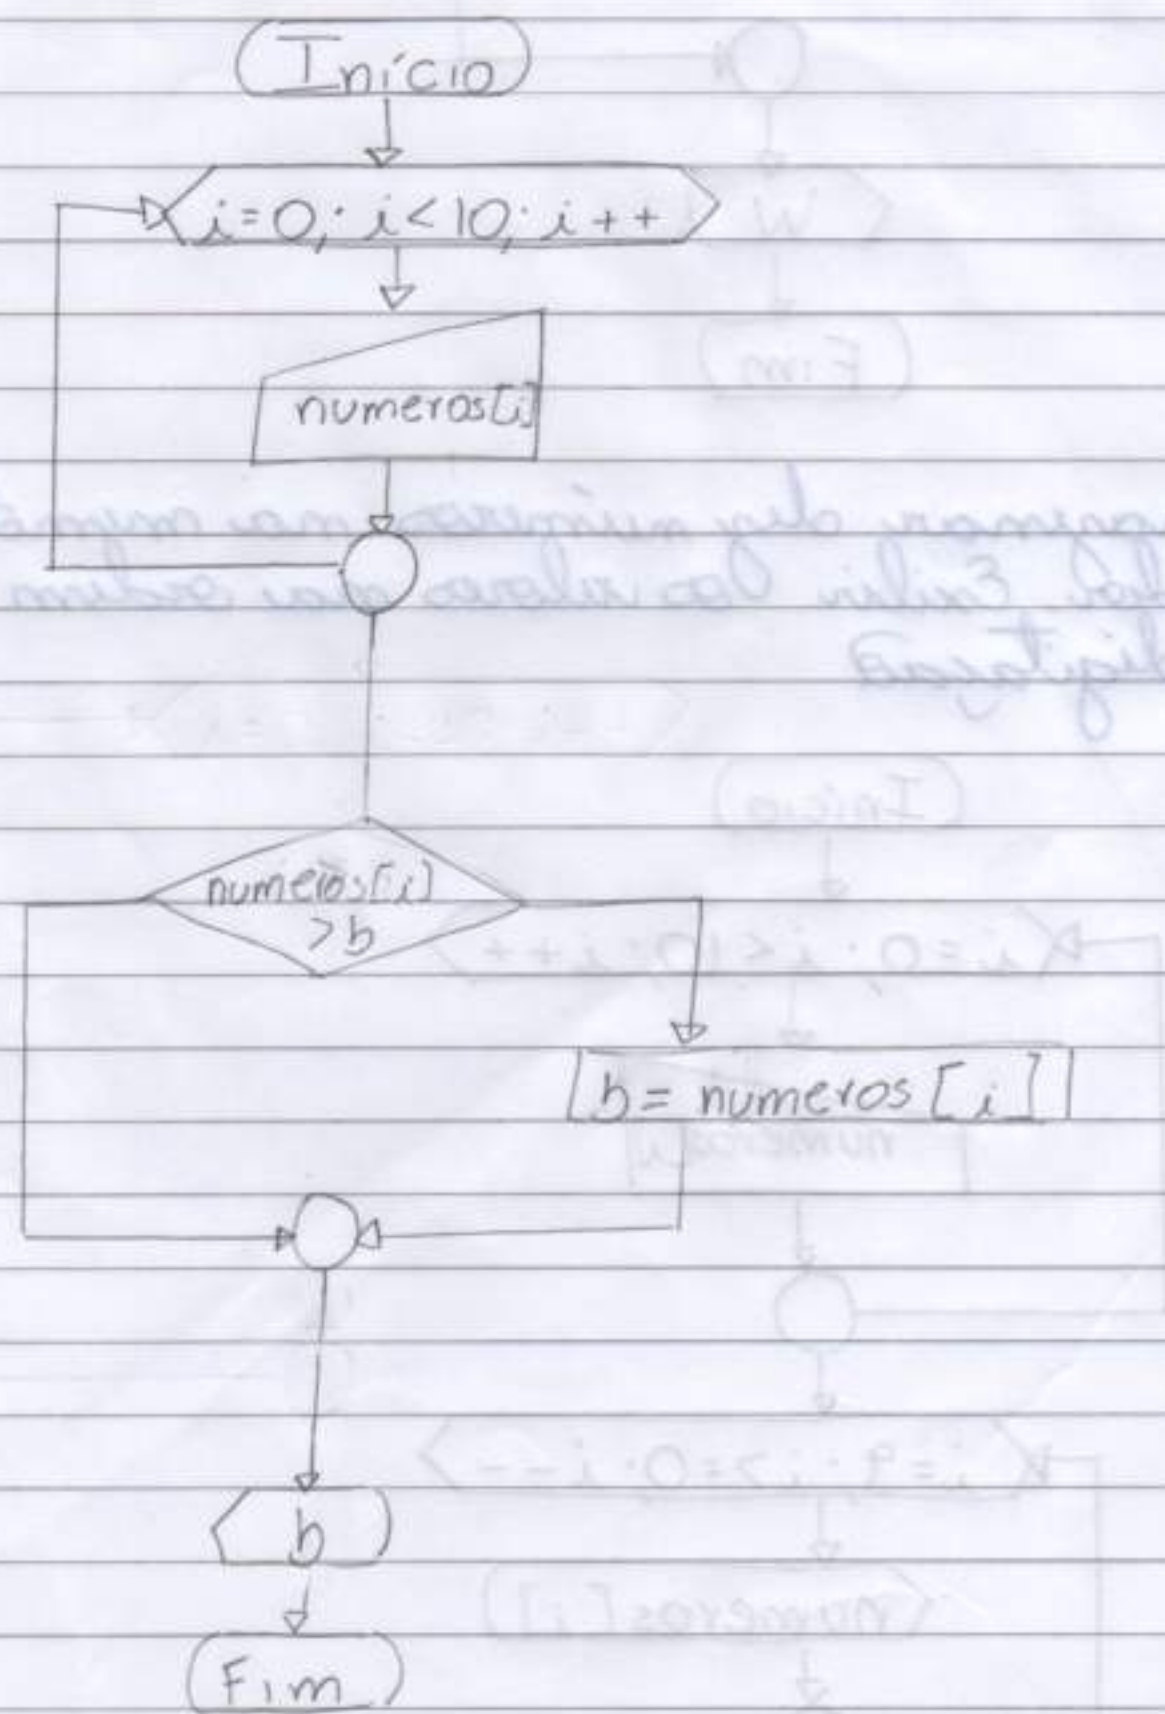 Início
i=0; i<10; i++
numeros[i]
numeros[i]
>b
b= numeros [i]
b
Fim